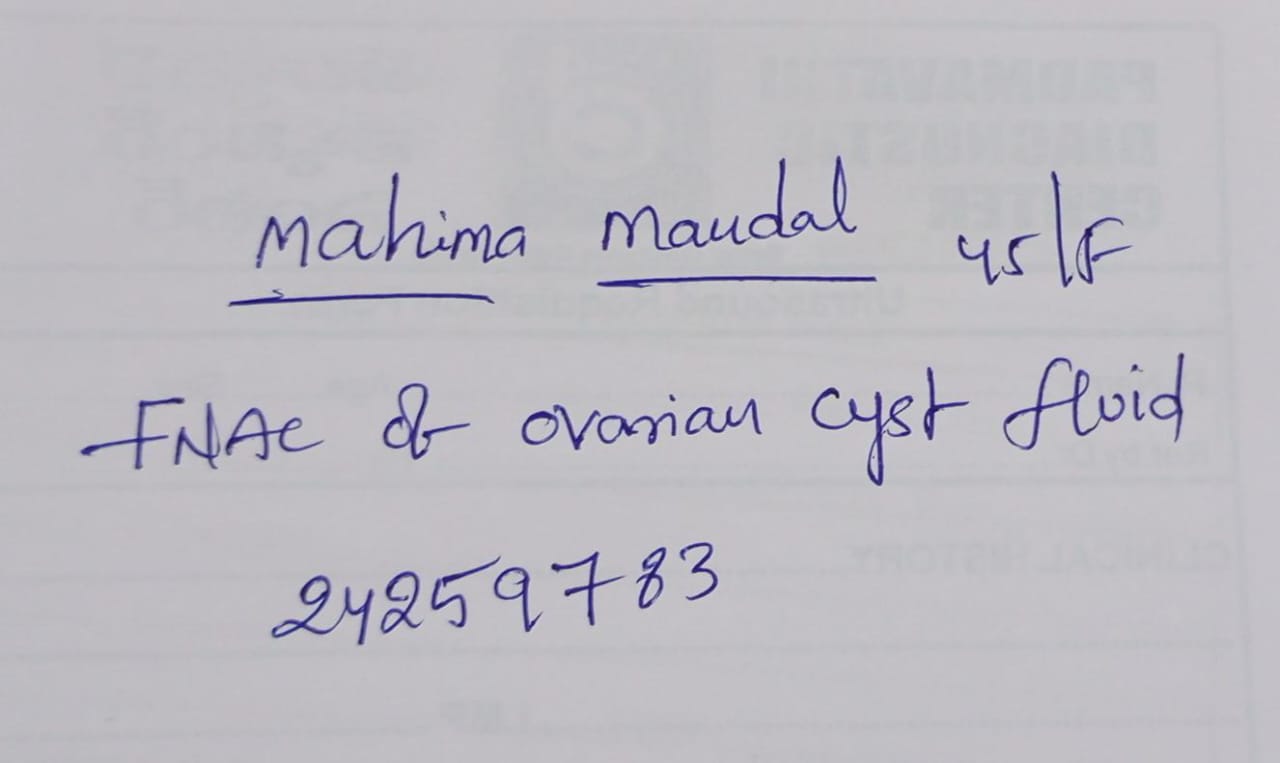 Mahima Mandal 45/F
FNAC of ovarian cyst fluid
24259783